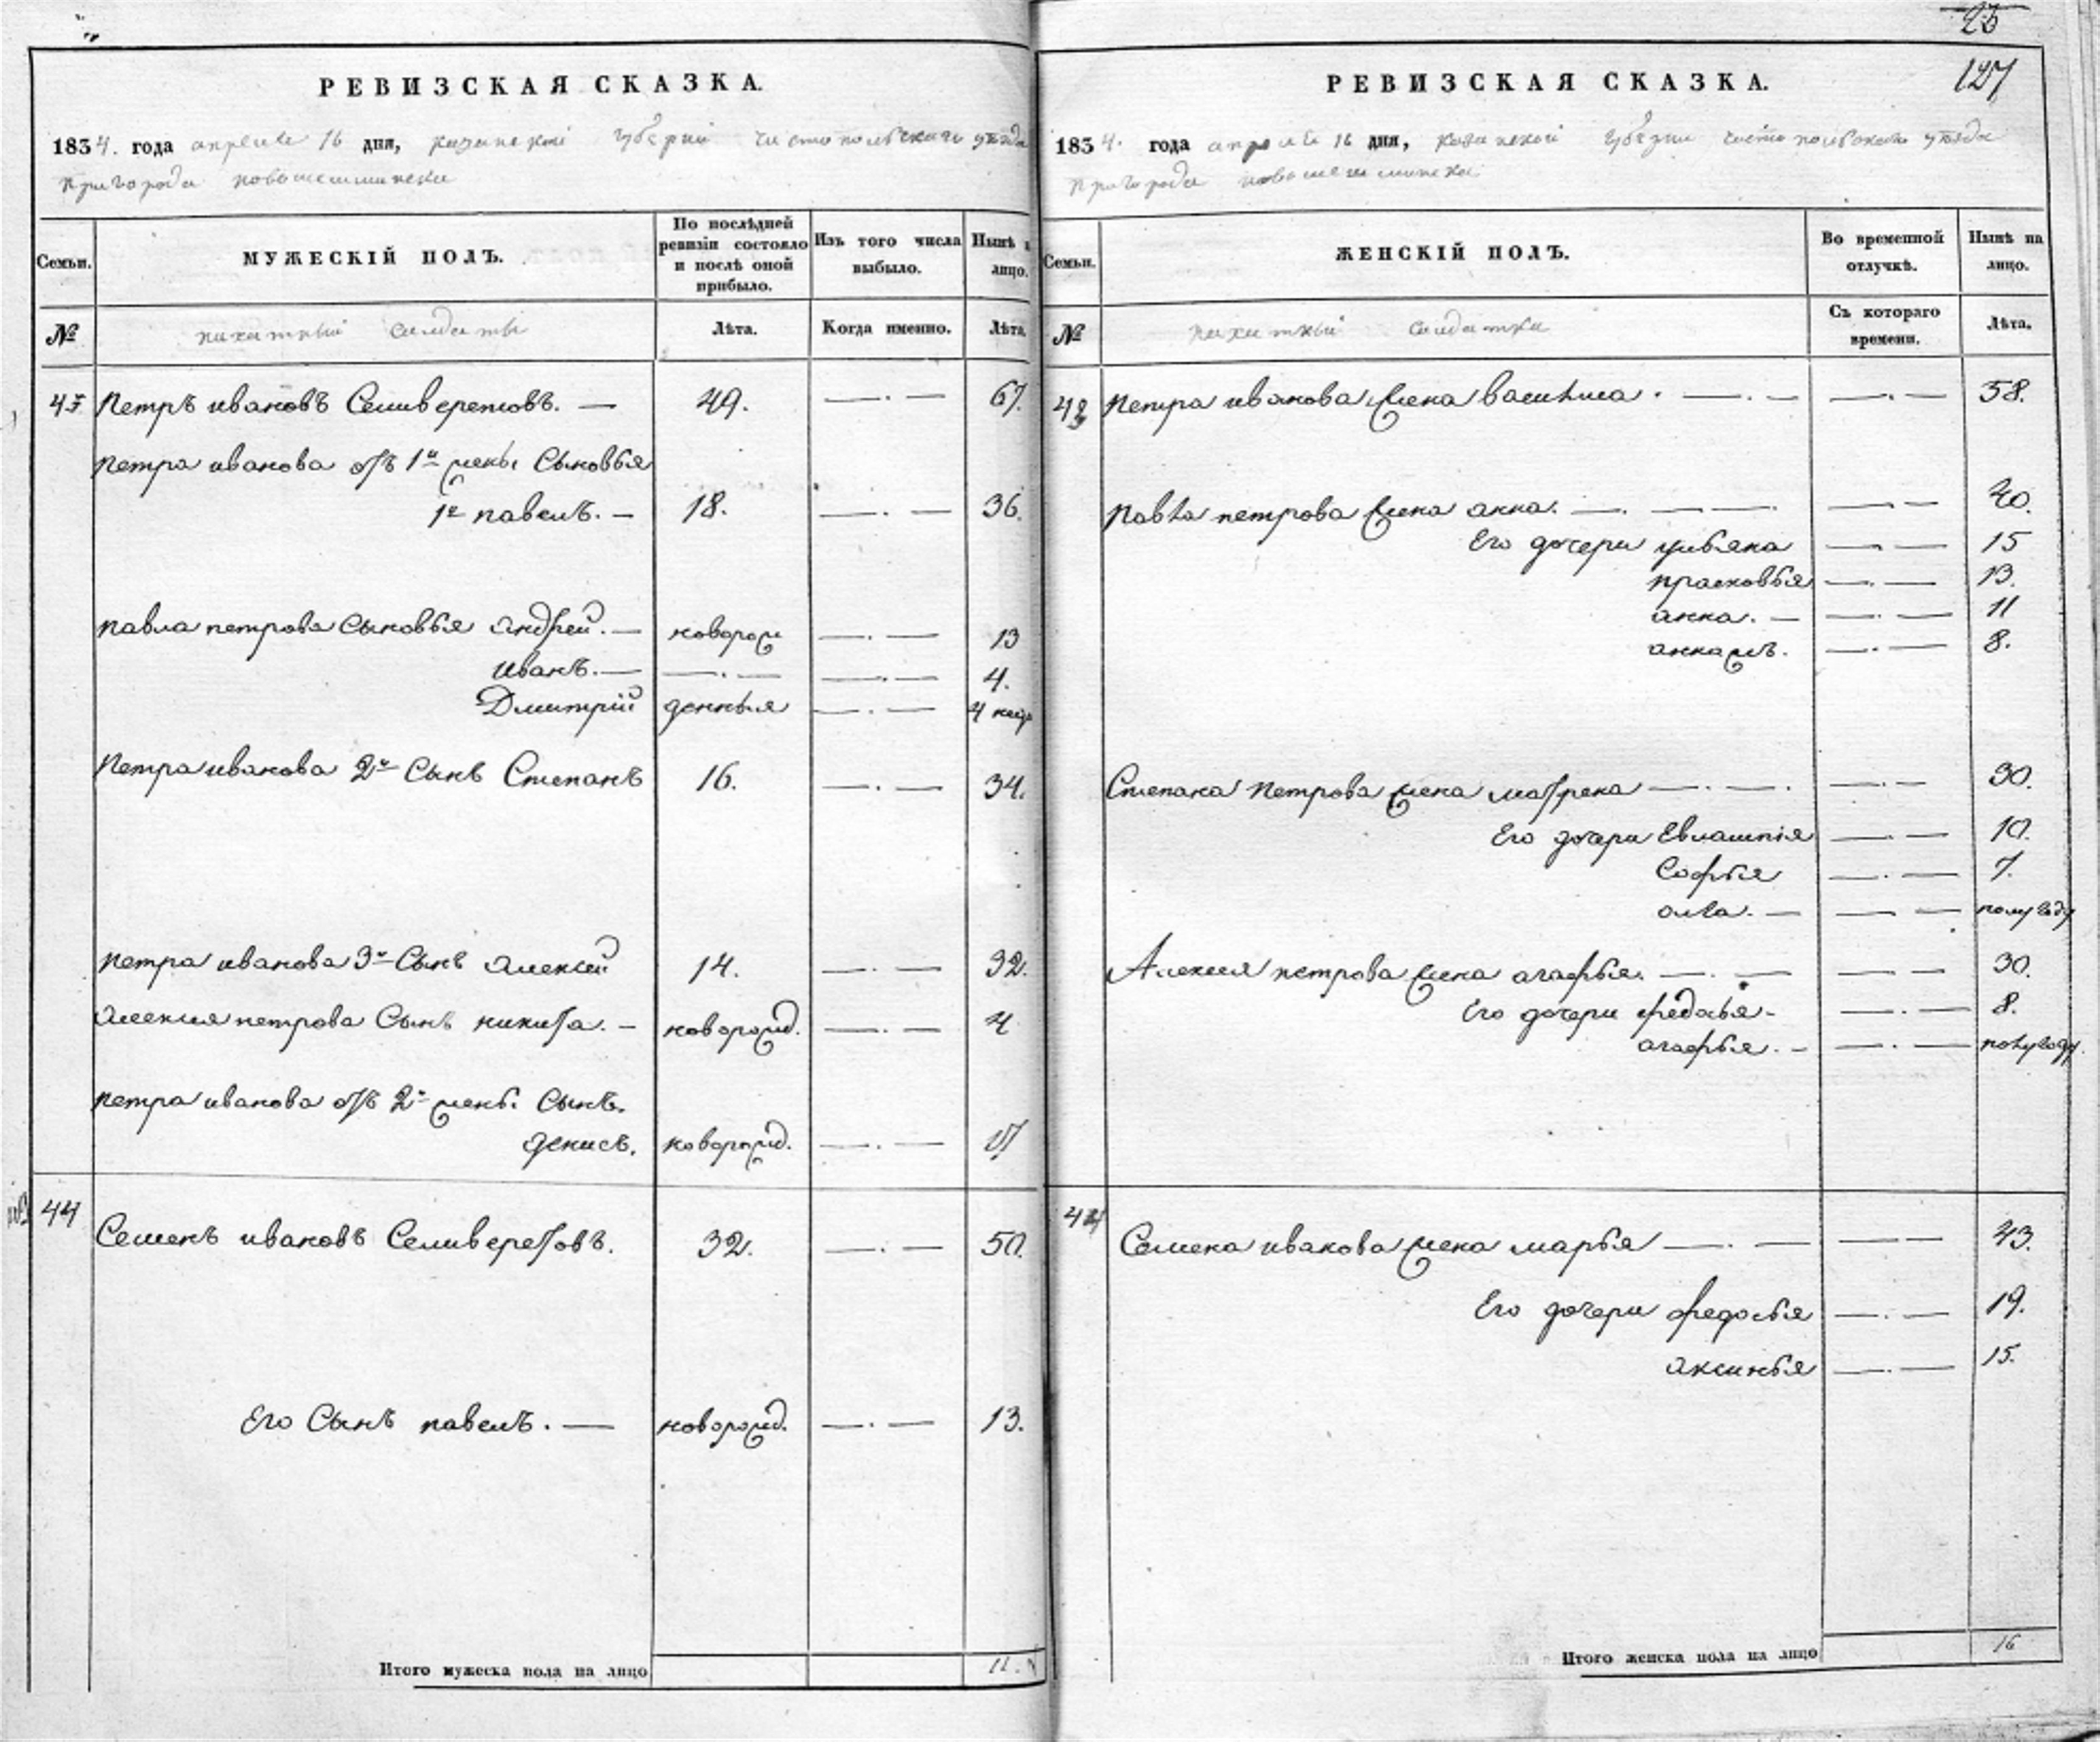 25
РЕВИЗСКАЯ СКАЗКА.
1834. года апреля 16 дня, казанской губернии чистопольскаго уѣзда
пригорода новошешминска
Семьи.
МУЖЕСКІЙ ПОЛЪ.
По послѣдней ревизіи состояло и послѣ оной прибыло.
Изъ того числа выбыло.
Нынѣ на лицо.
№
пахатный солдаты
Лѣта.
Когда именно.
Лѣта.
43 Петръ ивановъ Селиверстовъ. — 49. —.— 67.
Петра иванова отъ 1й жены Сыновья
1й павелъ. — 18. —.— 36.
павла петрова Сыновья Андрей. — новорож —.— 13
иванъ. — —.— —.— 4.
Дмитрій —.—
Петра иванова 2й Сынъ Степанъ 16. —.— 34.
петра иванова 3й Сынъ Алексей 14. —.— 32.
Алексея петрова Сынъ никита. — новорожд. —.— 4
петра иванова отъ 2й жены Сынъ.
денисъ. новорожд. —.— 17
44 Семенъ ивановъ Селиверстовъ. 32. —.— 50.
Его Сынъ павелъ. — новорожд. —.— 13.
Итого мужеска пола на лицо 11.
127
РЕВИЗСКАЯ СКАЗКА.
1834. года апреля 16 дня, казанской губернии чистопольскаго уѣзда
пригорода новошешминска
Семьи.
ЖЕНСКІЙ ПОЛЪ.
Во временной отлучкѣ.
Нынѣ на лицо.
№
пахатный солдатки
Съ котораго времени.
Лѣта.
43 Петра иванова жена василиса. —.— —.— 58.
Павла петрова жена анна. —.—.— —.— 40.
Его дочери ульяна —.— 15
прасковья —.— 13.
анна. — —.— 11
анна жъ. —.— 8.
Степана Петрова жена матрена —.—. —.— 30.
Его дочери Евлампія —.— 10.
Софья —.— 7.
олга. — —.— полугоду
Алексея петрова жена агафья. —.— —.— 30.
Его дочери федосья - —.— 8.
агафья. — —.— полугоду.
44 Семена иванова жена марья —.— —.— 43.
Его дочери федосья —.— 19.
Аксинья —.— 15.
Итого женска пола на лицо 16